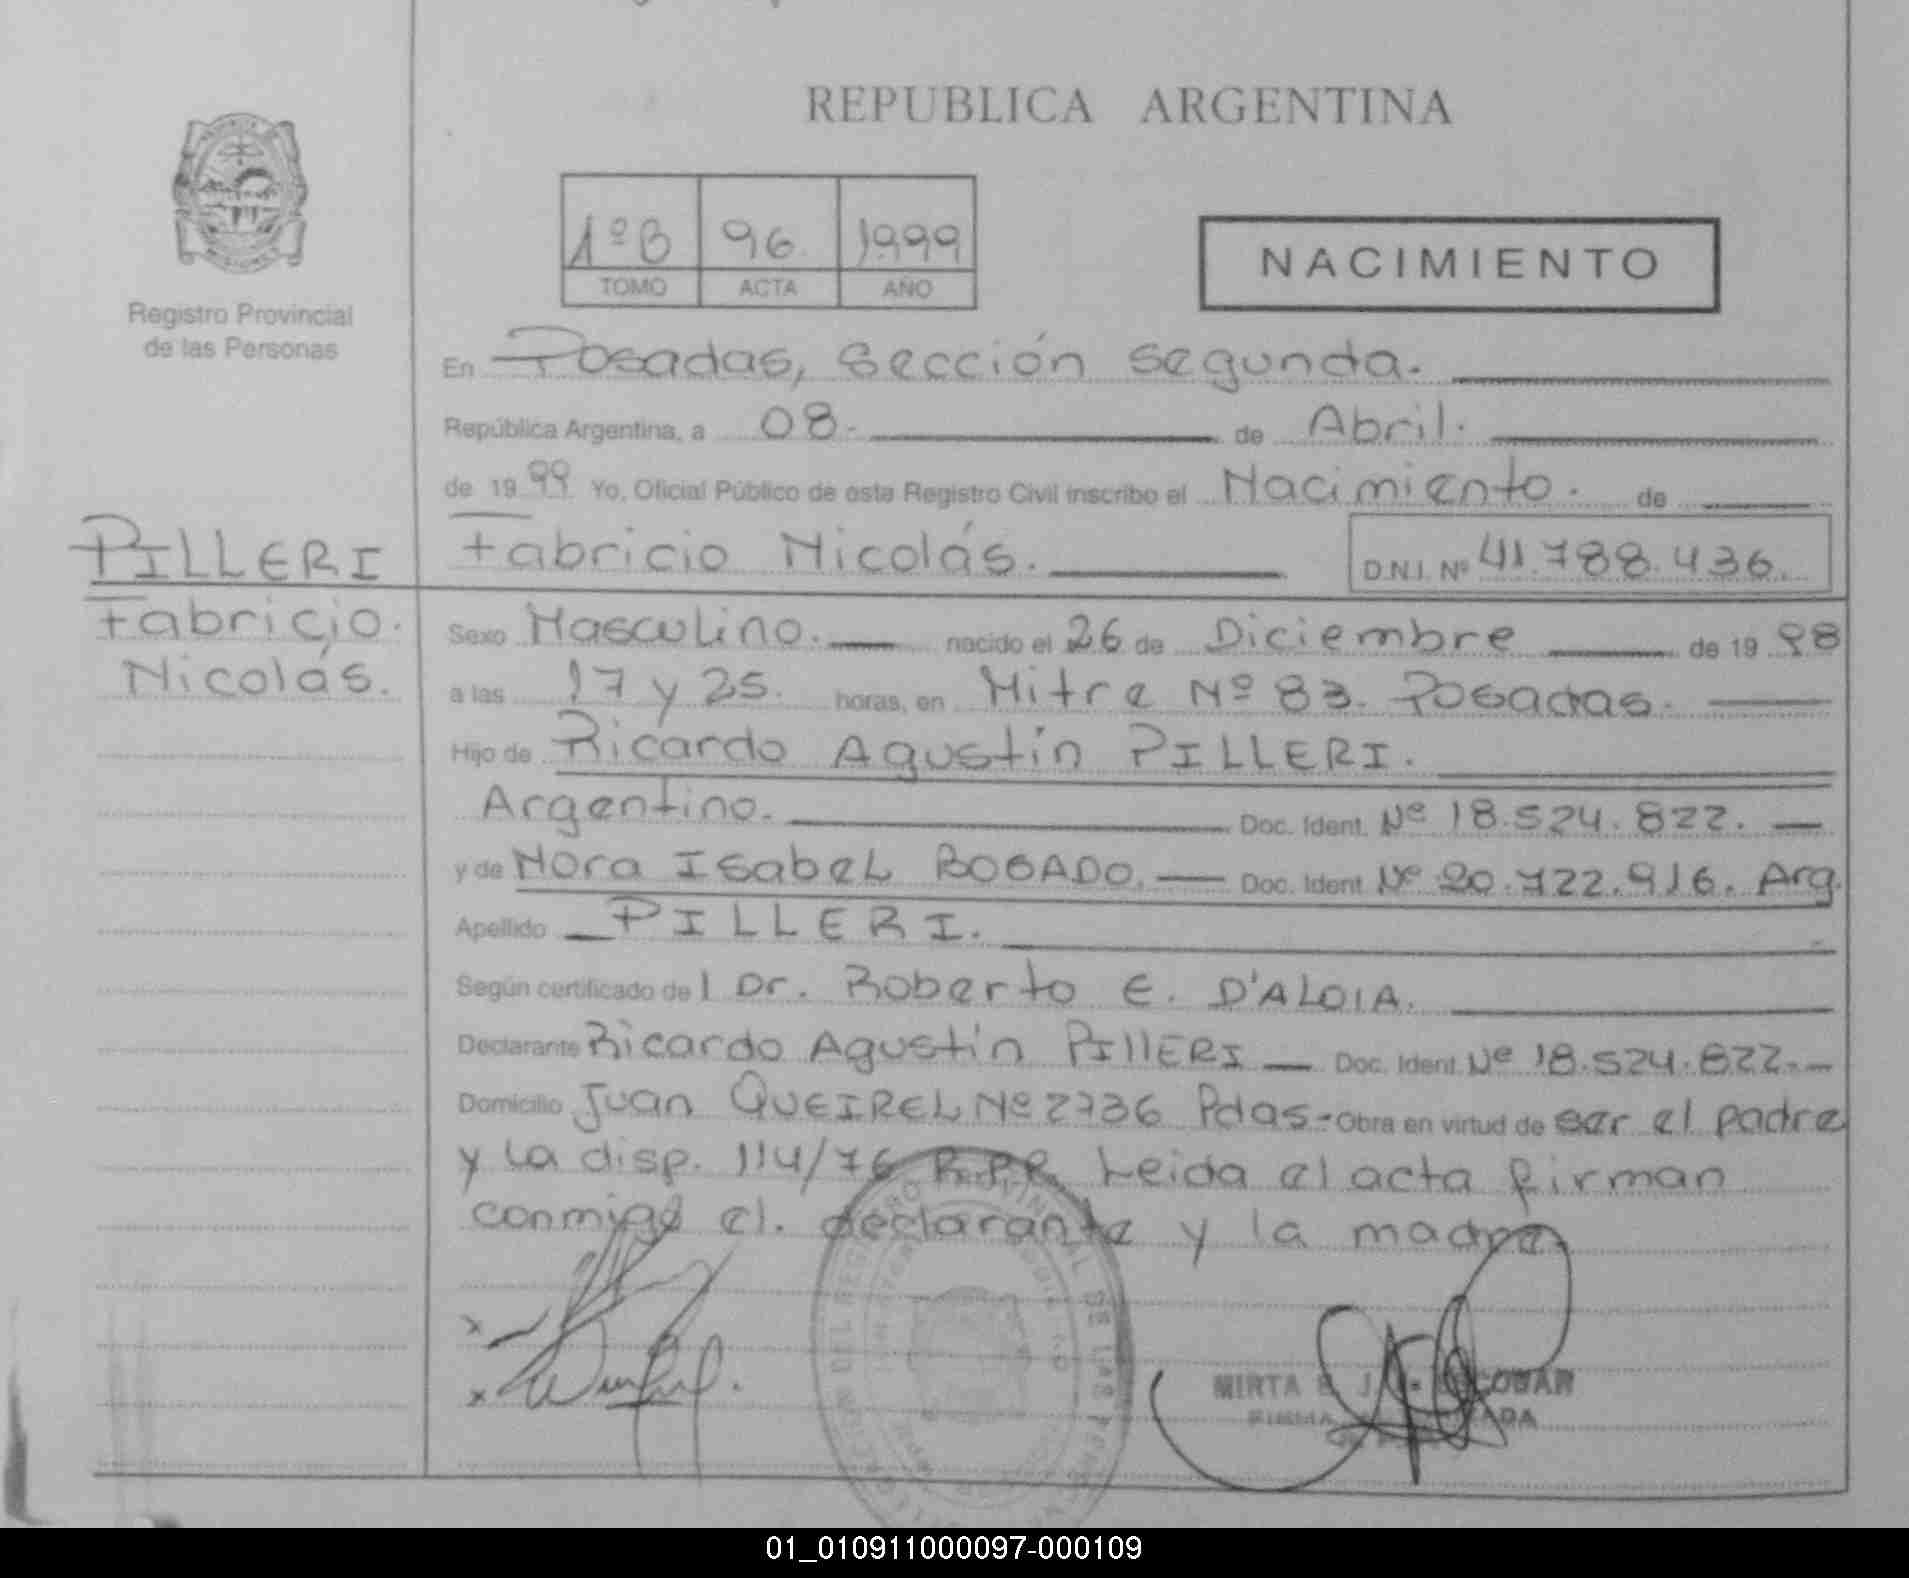 REPUBLICA ARGENTINA
1º B 96. 1999
TOMO ACTA AÑO
NACIMIENTO
Registro Provincial
de las Personas
En Posadas, Sección Segunda.
República Argentina, a 08. de Abril.
de 1999 Yo, Oficial Público de este Registro Civil inscribo el Nacimiento. de
Fabricio Nicolás. D.N.I. Nº 41.788.436.
PILLERI
Fabricio.
Nicolás.
Sexo Masculino. nacido el 26 de Diciembre de 1998
a las 17 y 25. horas, en Mitre Nº 83. Posadas.
Hijo de Ricardo Agustín PILLERI.
Argentino. Doc. Ident. Nº 18.524.822.
y de Nora Isabel BOGADO. Doc. Ident. Nº 20.722.916. Arg.
Apellido PILLERI.
Según certificado del Dr. Roberto E. D'ALOIA.
Declarante Ricardo Agustín PIllERI Doc. Ident. Nº 18.524.822.
Domicilio Juan QUEIREL Nº 2736 Pdas - Obra en virtud de ser el padre
y la disp. 114/76 R.P.P. Leida el acta firman
conmigo el. declarante y la madre.
MIRTA
01_010911000097-000109